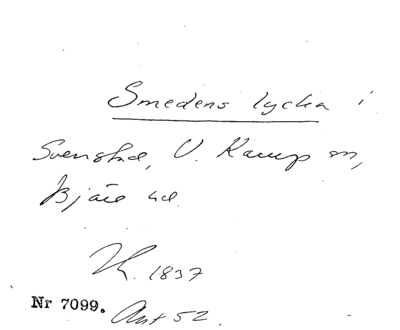 Smedens lycka i
Svenstad, V. Karup sn,
Bjäre hd.
1837
Nr 7099. Ant 52.